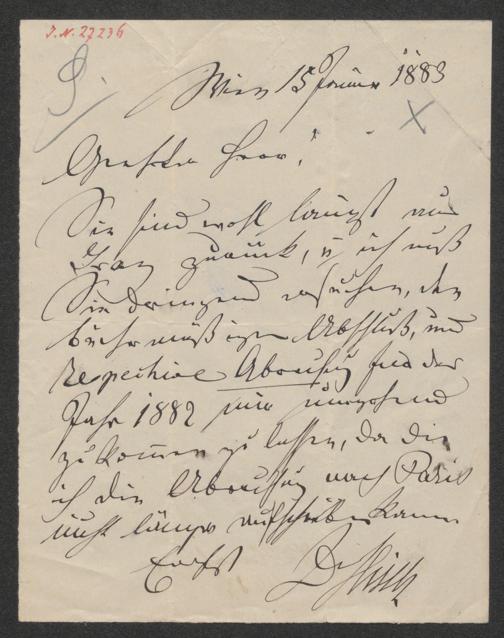 J.N. 27236
Wien 15 Januar 1883
Geehrter Herr!
Sie sind wohl längst aus
Graz zurück, u ich muß
Sie dringend ersuchen, den
buchmäßigen Abschluß, und
respective Abrechng für das
Jahr 1882 mir umgehend
zukommen zu lassen, da
ich die Abrechng nach Paris
nicht länger aufschieben kann